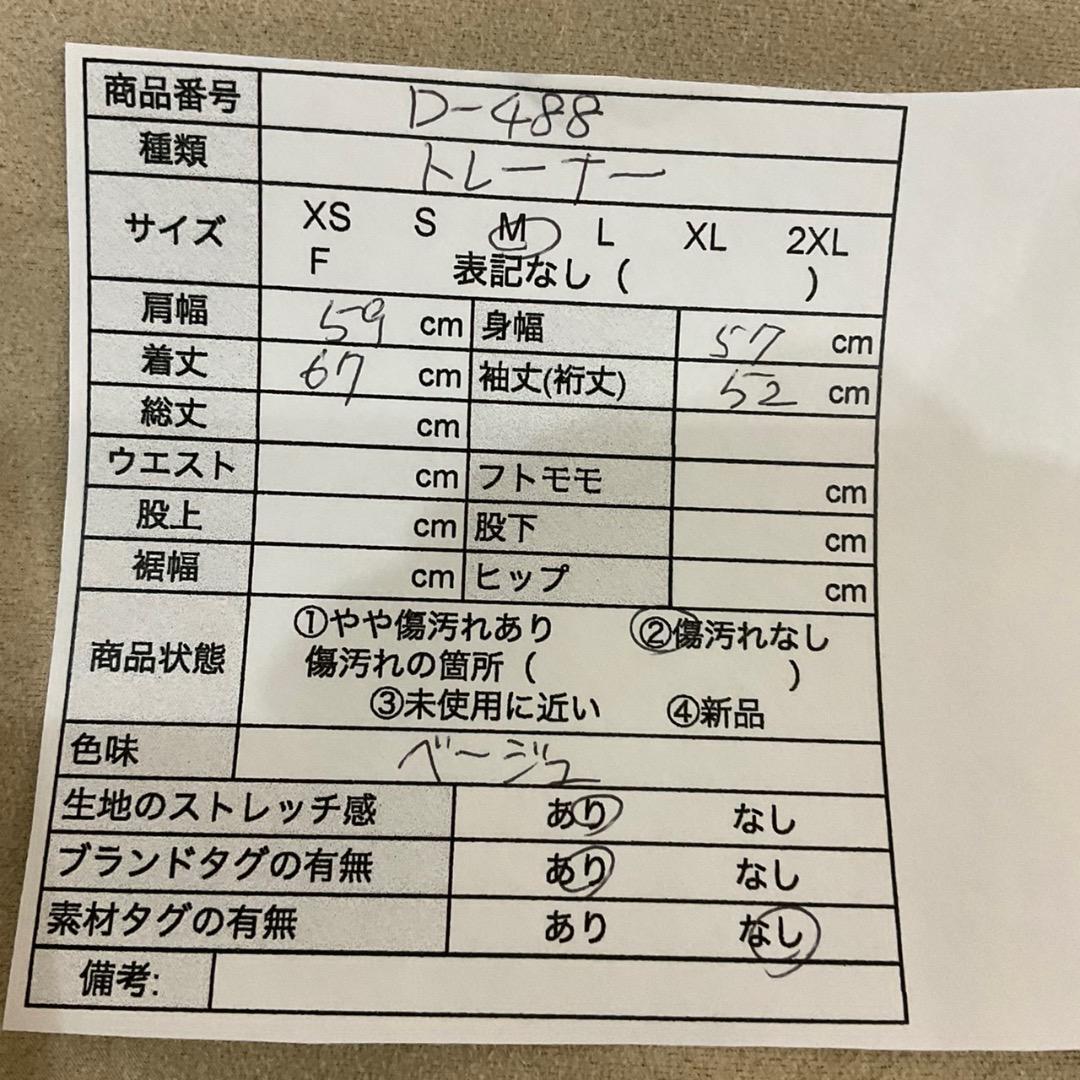 商品番号 D-488
種類 トレーナー
サイズ XS S M L XL 2XL
F 表記なし ( )
肩幅 59 cm 身幅 57 cm
着丈 67 cm 袖丈(裄丈) 52 cm
総丈 cm
ウエスト cm フトモモ cm
股上 cm 股下 cm
裾幅 cm ヒップ cm
商品状態 ①やや傷汚れあり ②傷汚れなし
傷汚れの箇所 ( )
③未使用に近い ④新品
色味 ベージュ
生地のストレッチ感 あり なし
ブランドタグの有無 あり なし
素材タグの有無 あり なし
備考: